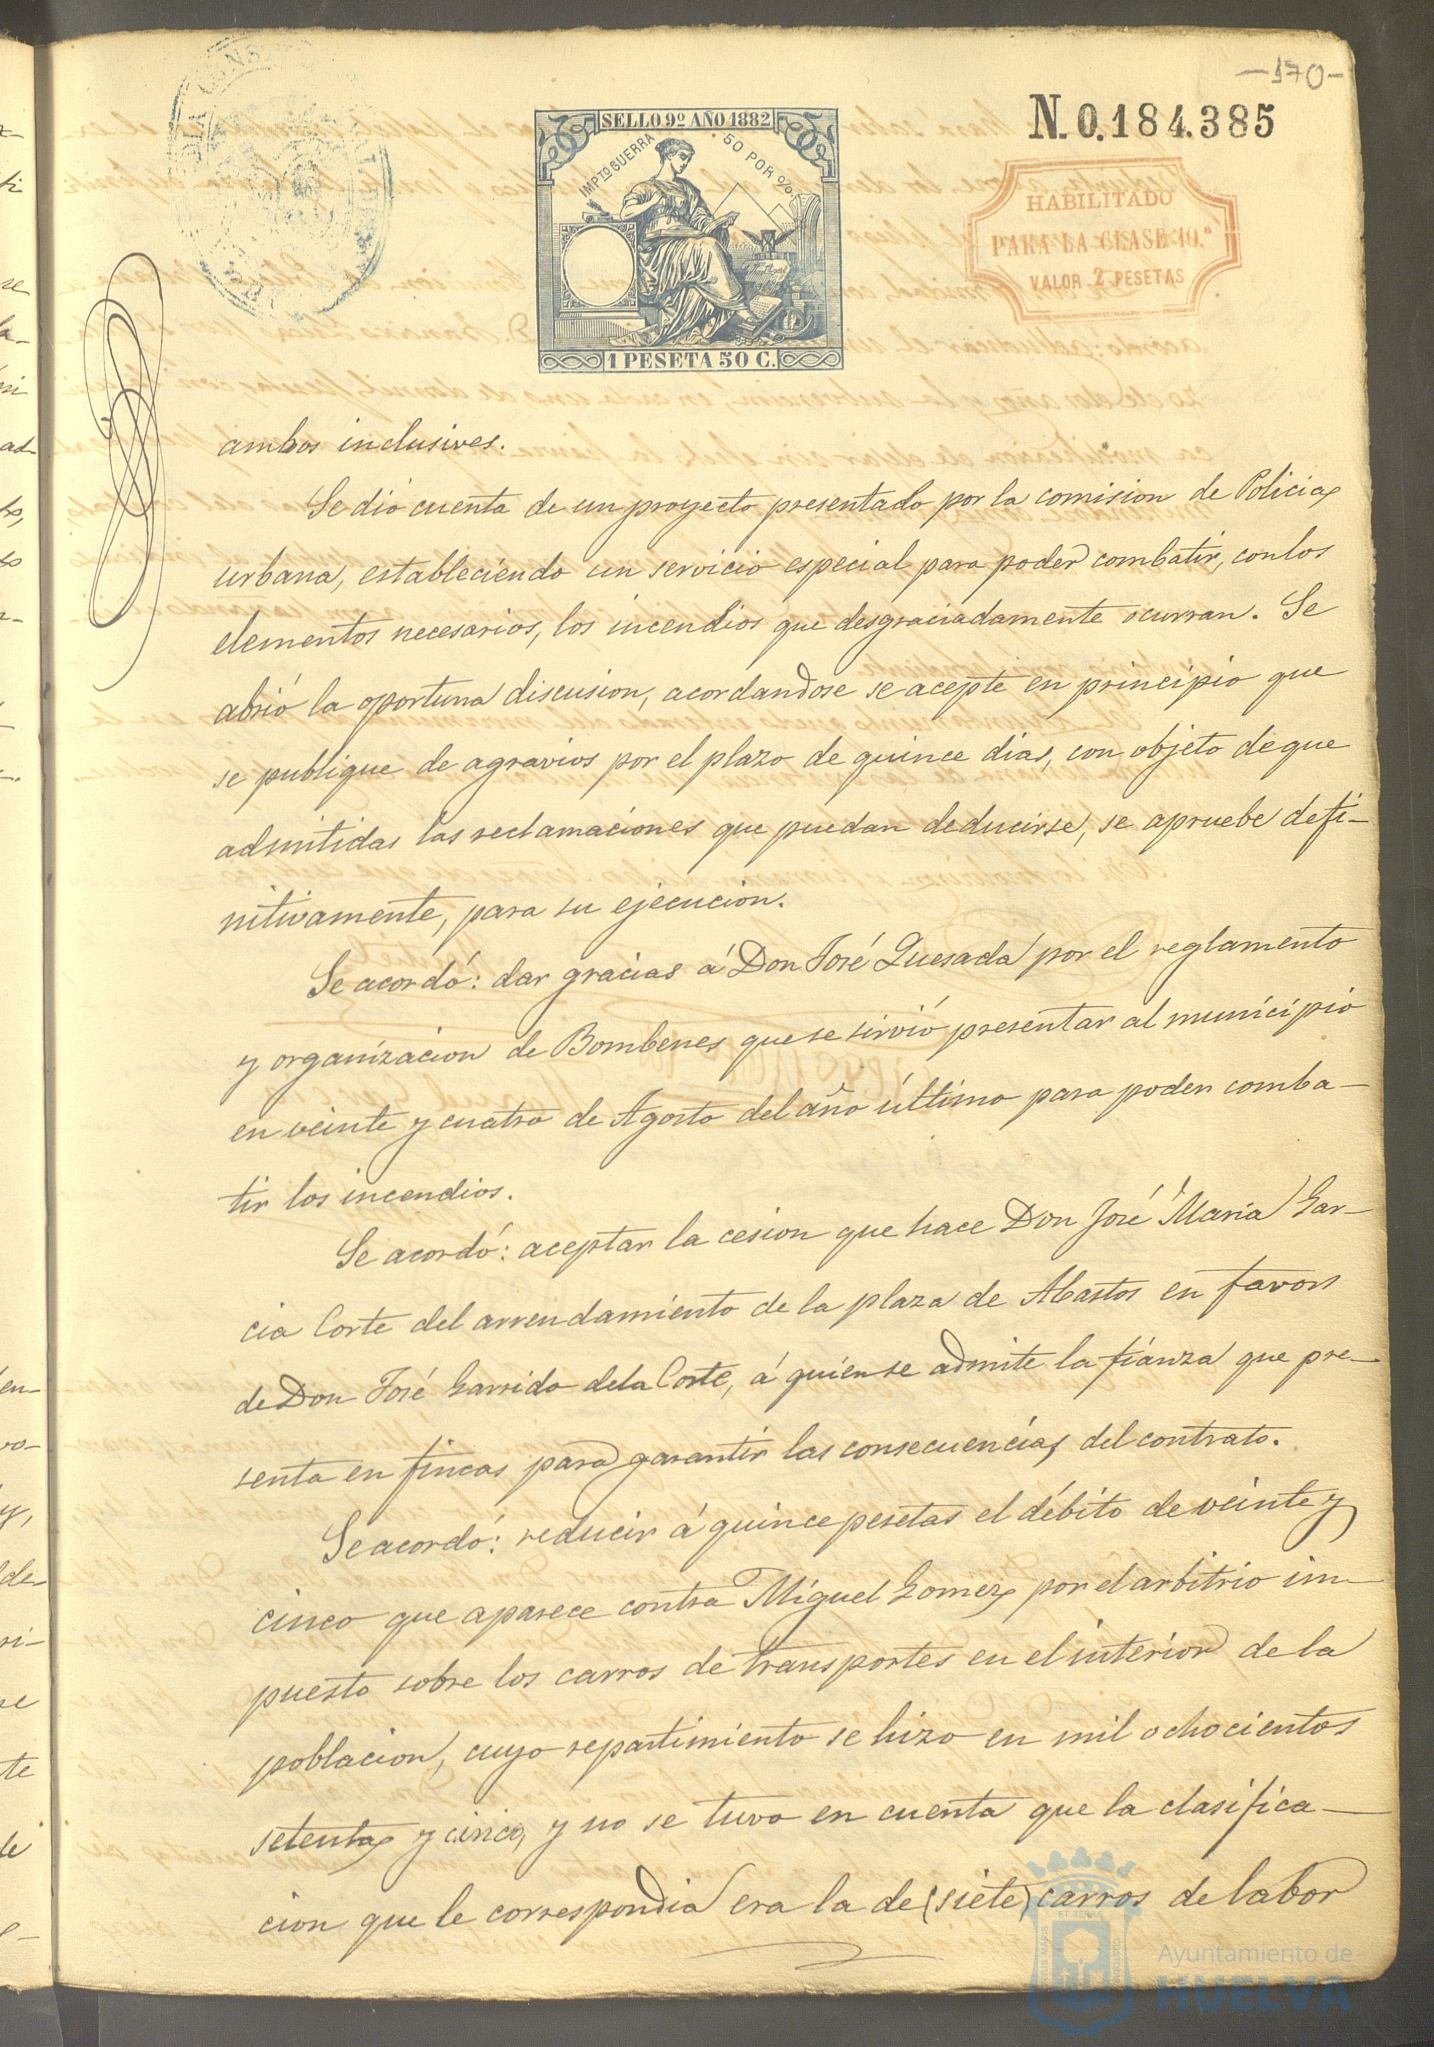 -170-
N.0.184.385
SELLO 9º AÑO 1882
IMPTO GUERRA · 50 POR %.
1 PESETA 50 C.
HABILITADO
PARA LA CLASE 10.ª
VALOR 2 PESETAS
ambos inclusives.
Se dió cuenta de un proyecto presentado por la comision de Policia
urbana, estableciendo un servicio especial para poder combatir, con los
elementos necesarios, los incendios que desgraciadamente ocurran. Se
abrió la oportuna discusion, acordandose se acepte en principio que
se publique de agravios por el plazo de quince dias, con objeto de que
admitidas las reclamaciones que puedan deducirse, se apruebe defi-
nitivamente, para su ejecucion.
Se acordó: dar gracias á Don José Quesada por el reglamento
y organizacion de Bomberos que se sirvió presentar al municipio
en veinte y cuatro de Agosto del año último para poder comba-
tir los incendios.
Se acordó: aceptar la cesion que hace Don José María Gar-
cia Corte del arrendamiento de la plaza de Abastos en favor
de Don José Garrido de la Corte, á quien se admite la fianza que pre-
senta en fincas para garantir las consecuencias del contrato.
Se acordó: reducir á quince pesetas el débito de veinte y
cinco que aparece contra Miguel Gomez por el arbitrio im-
puesto sobre los carros de transportes en el interior de la
poblacion, cuyo repartimiento se hizo en mil ochocientos
setenta y cinco, y no se tuvo en cuenta que la clasifica-
cion que le correspondia era la de (siete) carros de labor
Ayuntamiento de
HUELVA